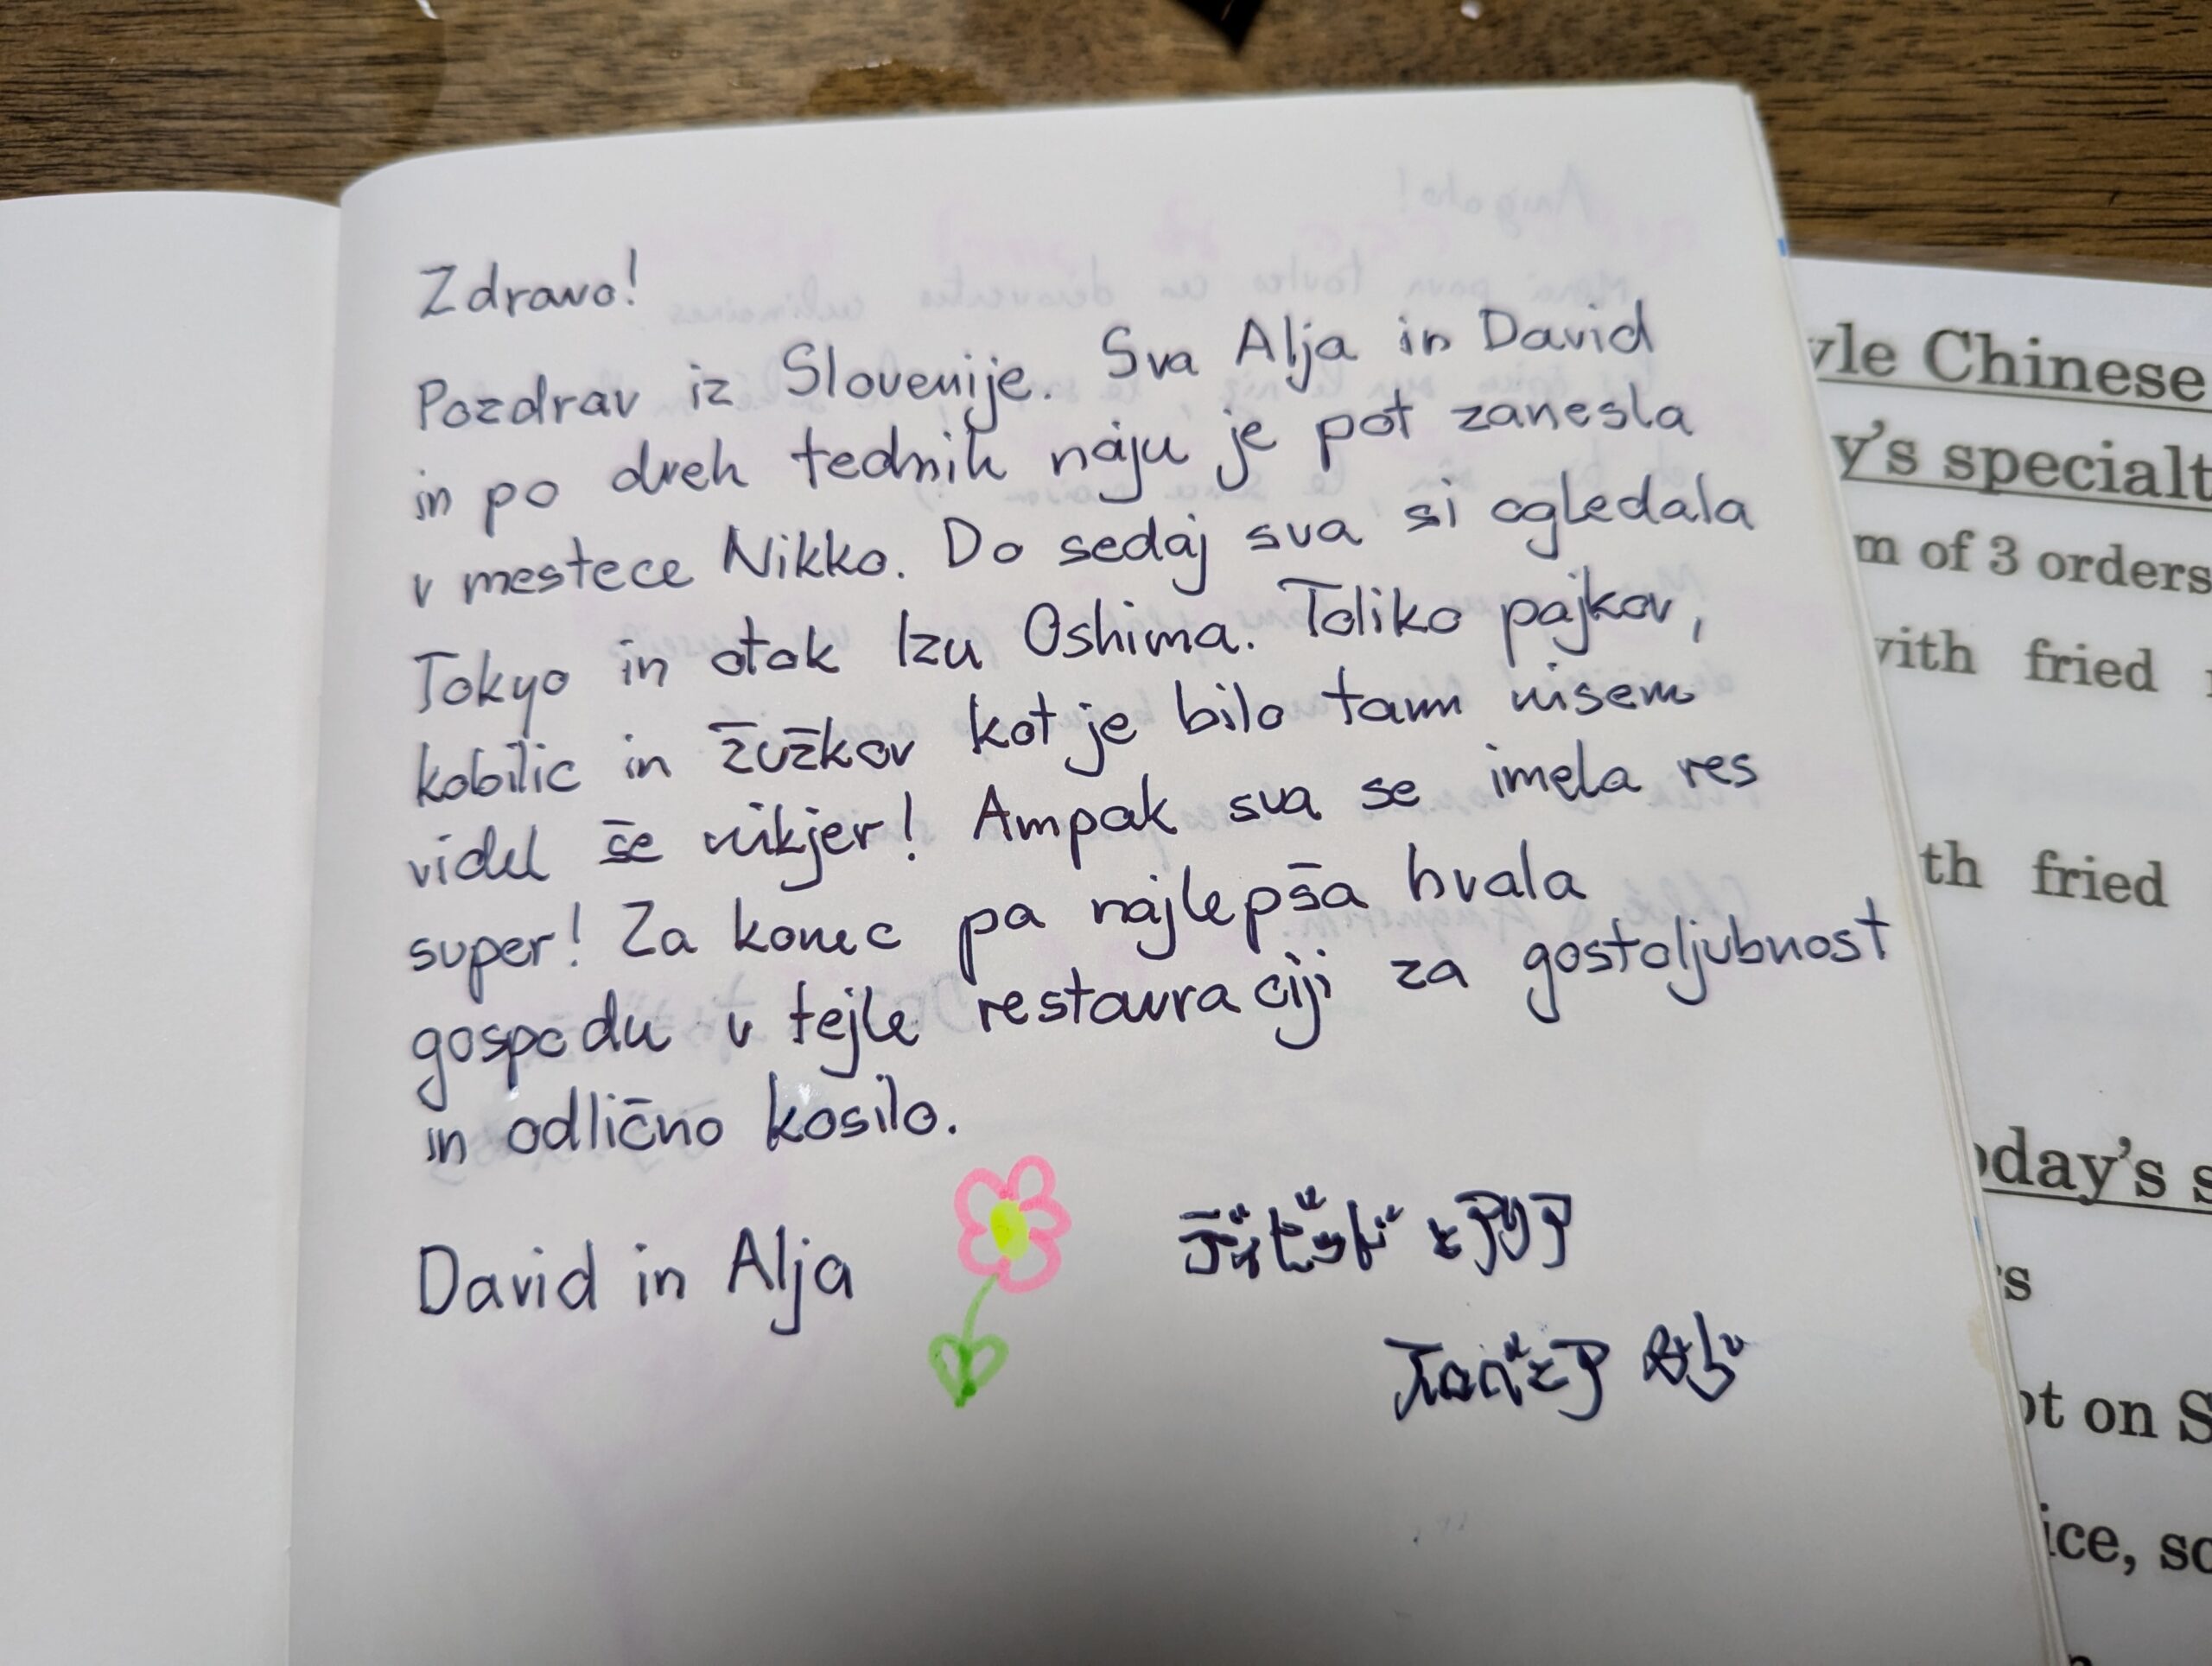 Zdravo!
Pozdrav iz Slovenije. Sva Alja in David
in po dveh tednih naju je pot zanesla
v mestece Nikko. Do sedaj sva si ogledala
Tokyo in otok Izu Oshima. Toliko pajkov,
kobilic in žužkov kot je bilo tam nisem
videl še nikjer! Ampak sva se imela res
super! Za konec pa najlepša hvala
gospodu v tejle restavraciji za gostoljubnost
in odlično kosilo.
David in Alja
yle Chinese
y's specialt
m of 3 orders
with fried
th fried
oday's s
's
ot on S
ice, so